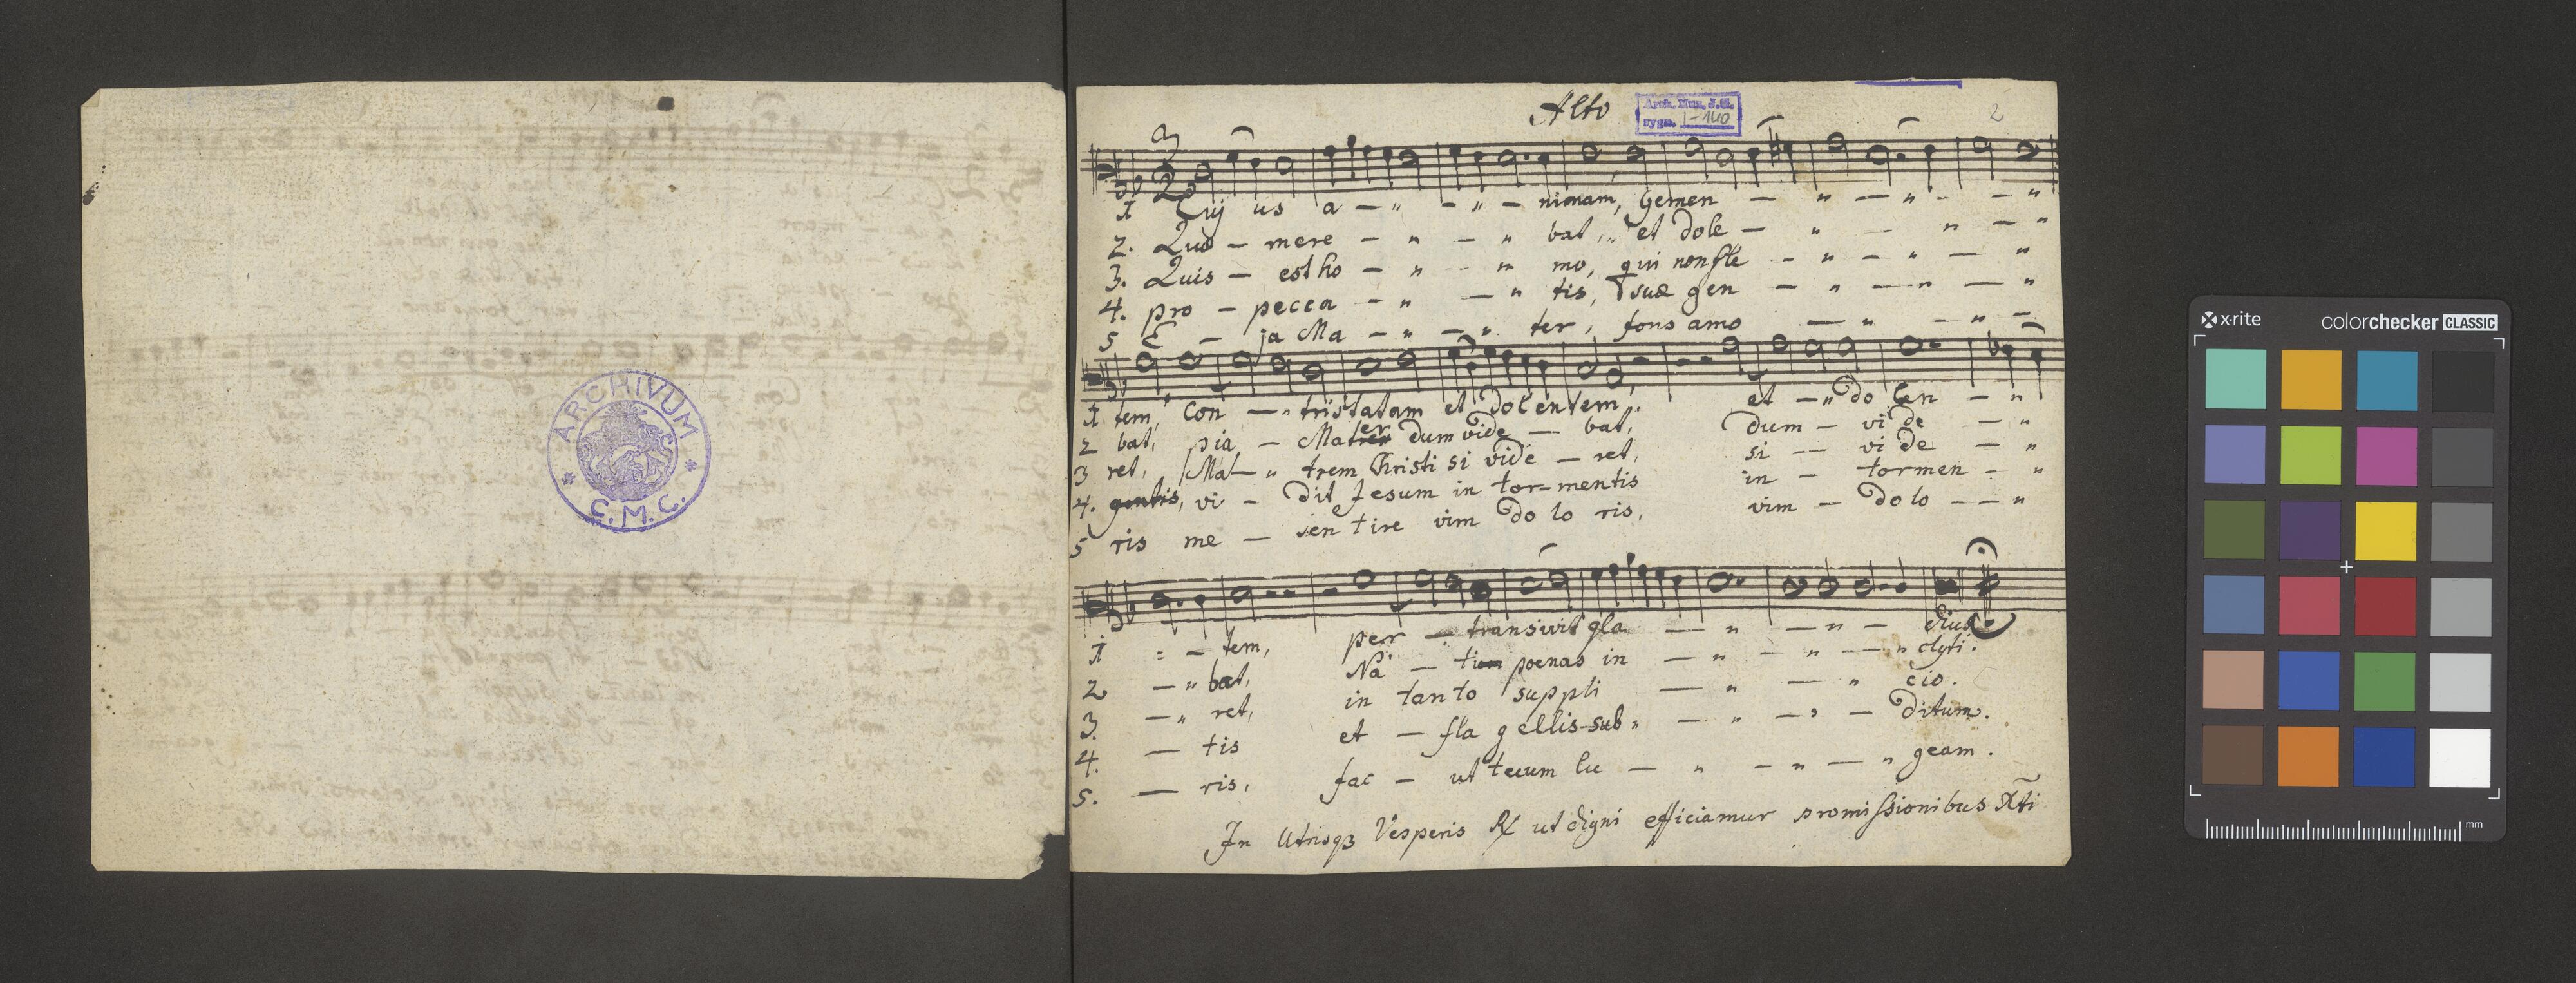 ARCHIVUM
C. M. C.
Alto
Arch. Mus. J.G.
sygn. I-140
2
3
2
1 Cuj us a — " — " — nimam, Gemen — " — " — — "
2. Quæ — mere — " — " bat, " et dole — " — " — "
3. Quis — est ho — " — " mo, qui non fle — " — " — "
4. pro — pecca — " — " tis, suæ gen — " — " — "
5 E — ja Ma — " — " ter, fons amo — " — " —
1 tem, con — " tristatam et dolentem, et — " do len — "
2 bat, pia — Mater dum vide — bat, dum — vi de — "
3 ret, Mat — " trem Christi si vide — ret, si — vi de — "
4. gentis, vi — dit Jesum in tor-mentis in — tormen — "
5 ris me — sentire vim do lo ris, vim — do lo — — "
1 = — tem, per — transivit gla — " — " — dius
2 — " bat, Na — ti poenas in — " — " — — " clyti.
3. — " ret, in tanto suppli — " — " cio.
4. — tis et — fla gellis-sub " — " — " — ditum.
5. — ris, fac — ut tecum lu — " — " — " geam.
In Utrisqꝫ Vesperis ℟ ut digni efficiamur promissionibus Xti
x·rite colorchecker CLASSIC
mm